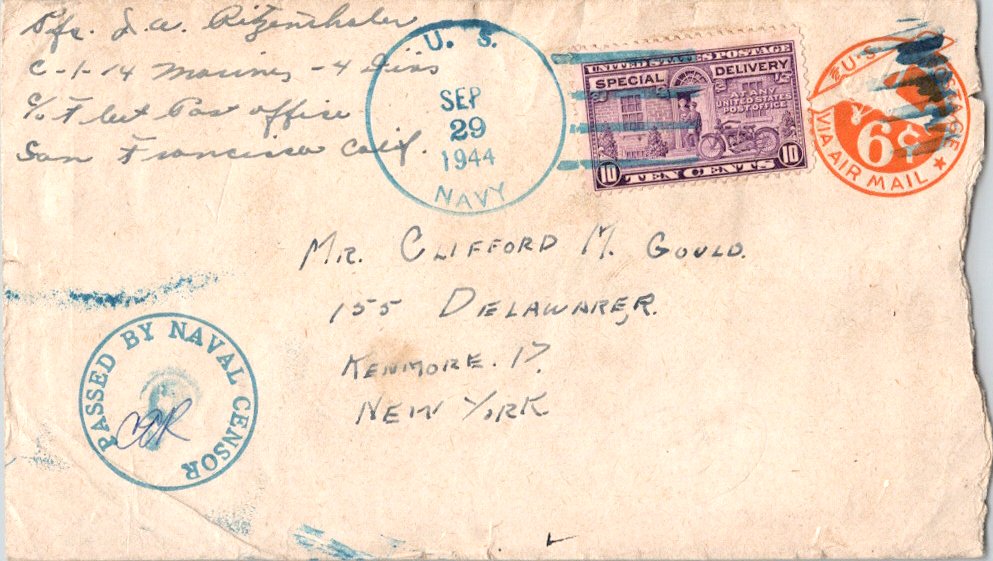 Pfc. J. A. Ritzenthaler
C-1-14 Marines - 4 Div
c/o Fleet Post office
San Francisco Calif.
U. S.
SEP
29
1944
NAVY
UNITED STATES POSTAGE
SPECIAL DELIVERY
AT ANY
UNITED STATES
POST OFFICE
10 TEN CENTS 10
U.S. POSTAGE
6¢
VIA AIR MAIL
MR. CLIFFORD M. GOULD.
155 DELAWARE, R.
KENMORE. 17.
NEW YORK
PASSED BY NAVAL CENSOR
CER